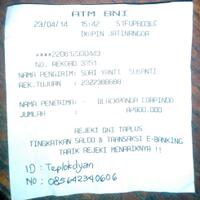 ATM BNI
23/04/14 15:42 S1FUPBDGLC
IKOPIN JATINANGOR
****220612500443
NO. REKORD 3151
NAMA PENGIRIM: SDRI YANTI SUSANTI
REK.TUJUAN : 2322388688
NAMA PENERIMA: BLACKPANDA CORPINDO
JUMLAH : RP900.000
REJEKI BNI TAPLUS
TINGKATKAN SALDO & TRANSAKSI E-BANKING
TARIK REJEKI MENARIKNYA !!
ID : Teplokdyan
No : 085642340606